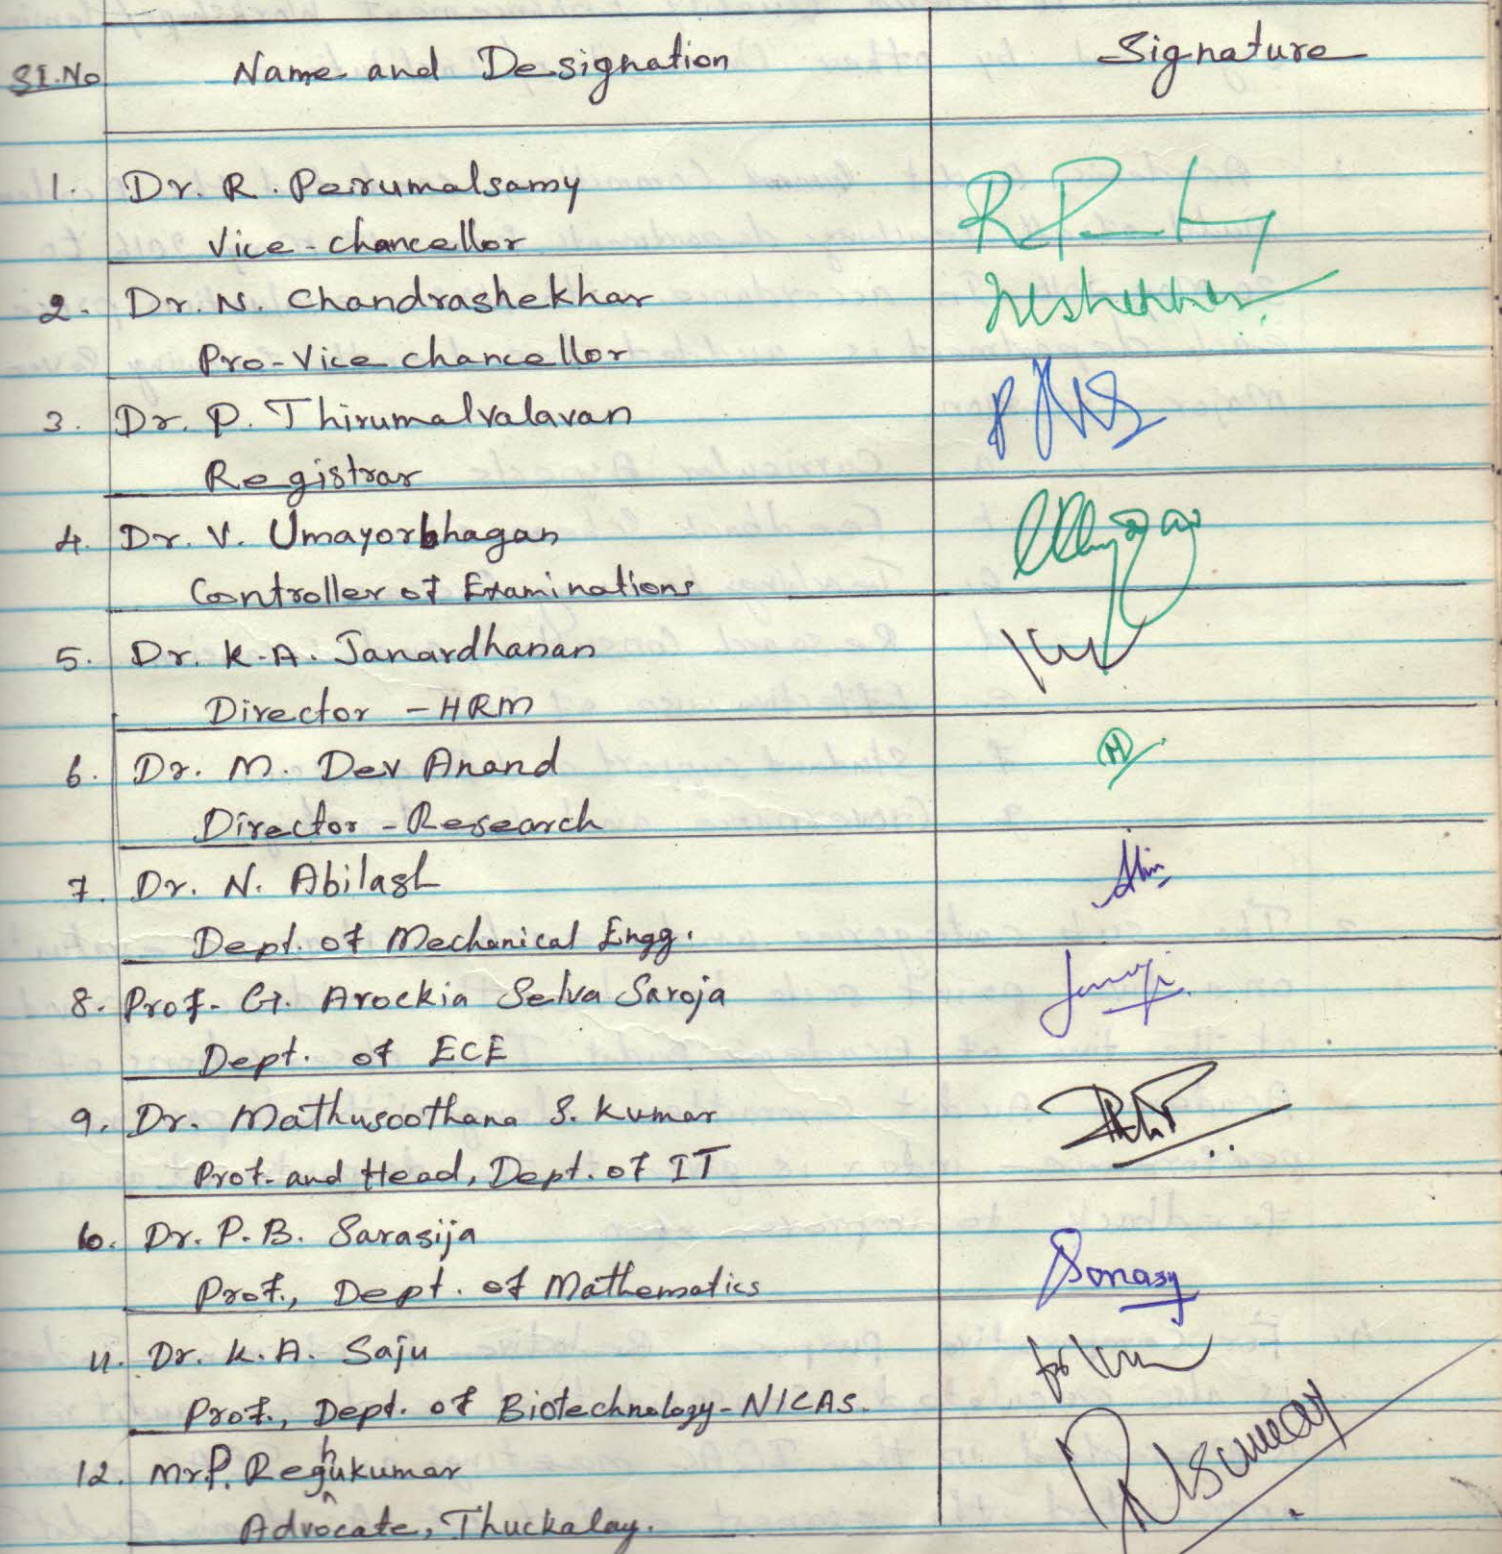 Sl.No Name and Designation Signature
1. Dr. R. Perumalsamy
Vice-chancellor
2. Dr. N. Chandrashekhar
Pro-Vice chancellor
3. Dr. P. Thirumalvalavan
Registrar
4. Dr. V. Umayorbhagan
Controller of Examinations
5. Dr. K.A. Janardhanan
Director - HRM
6. Dr. M. Dev Anand
Director - Research
7. Dr. N. Abilash
Dept. of Mechanical Engg.
8. Prof. G. Arockia Selva Saroja
Dept. of ECE
9. Dr. Mathusoothana S. Kumar
Prof. and Head, Dept. of IT
10. Dr. P.B. Sarasija
Prof., Dept. of Mathematics
11. Dr. K.A. Saju
Prof., Dept. of Biotechnology-NICAS.
12. Mr. P. Reghukumar
Advocate, Thuckalay.